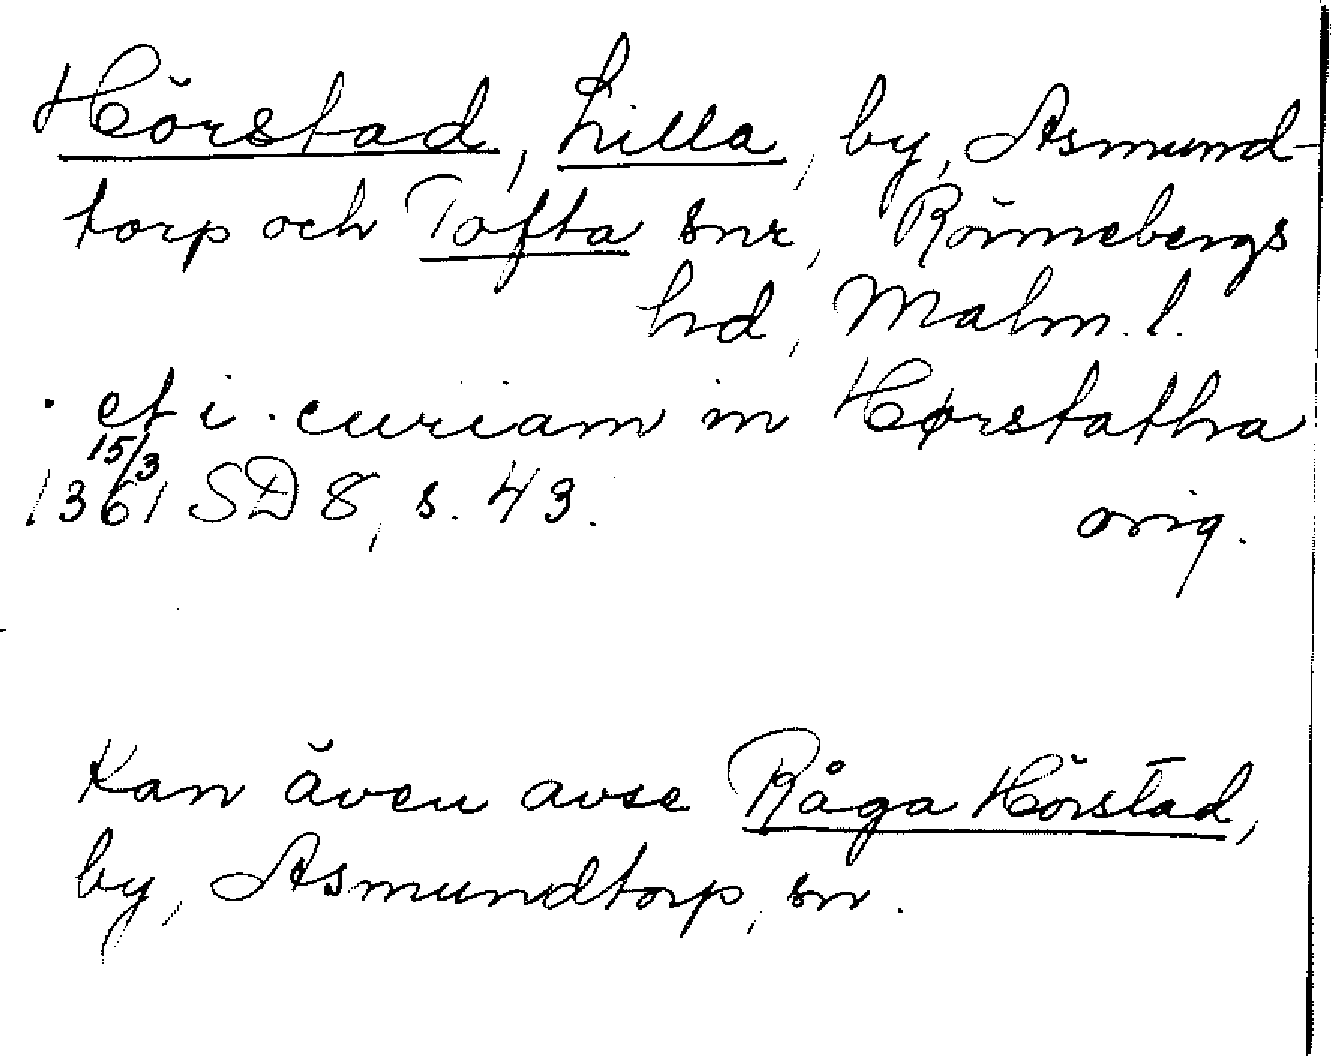 Hörstad, Lilla, by, Asmund-
torp och Tofta snr, Rönnebergs
hd, Malm. l.
. et i. curiam in Hørstatha
15/3
1361 SD 8, s. 43. orig.
Kan även avse Råga Hörstad,
by, Asmundtorp, sn.